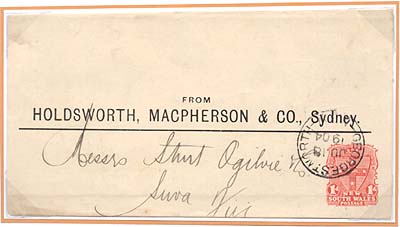 FROM
HOLDSWORTH, MACPHERSON & CO., Sydney.
Messrs Sturt Ogilvie & Co
Suva
Fiji
GEORGE ST NORTH
JU 18
1904
1d 1d
NEW
SOUTH WALES
POSTAGE